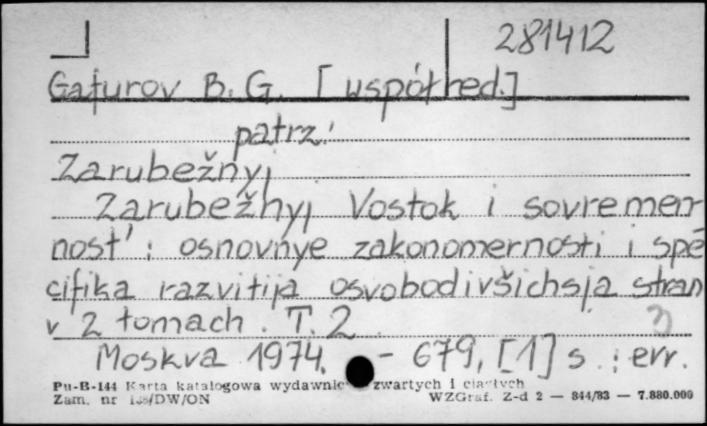 281412
Gafurov B. G. [współred.]
patrz:
Zarubežnyj
Zarubežnyj Vostok i sovremen-
nost' : osnovnye zakonomernosti i spe-
cifika razvitija osvobodivšichsja stran
v 2 tomach. T. 2
Moskva 1974. - 679, [1] s. ; err.
Pu-B-144 Karta katalogowa wydawnic zwartych i ciągłych
Zam. nr /DW/ON WZGraf. Z-d 2 — 844/83 — 7.880.000